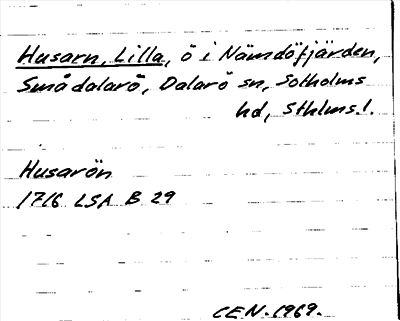 Husarn, Lilla, ö i Nämdöfjärden,
Smådalarö, Dalarö sn, Sotholms
hd, Sthlms l.
Husarön
1716 LSA B 29
CEN. 1969.